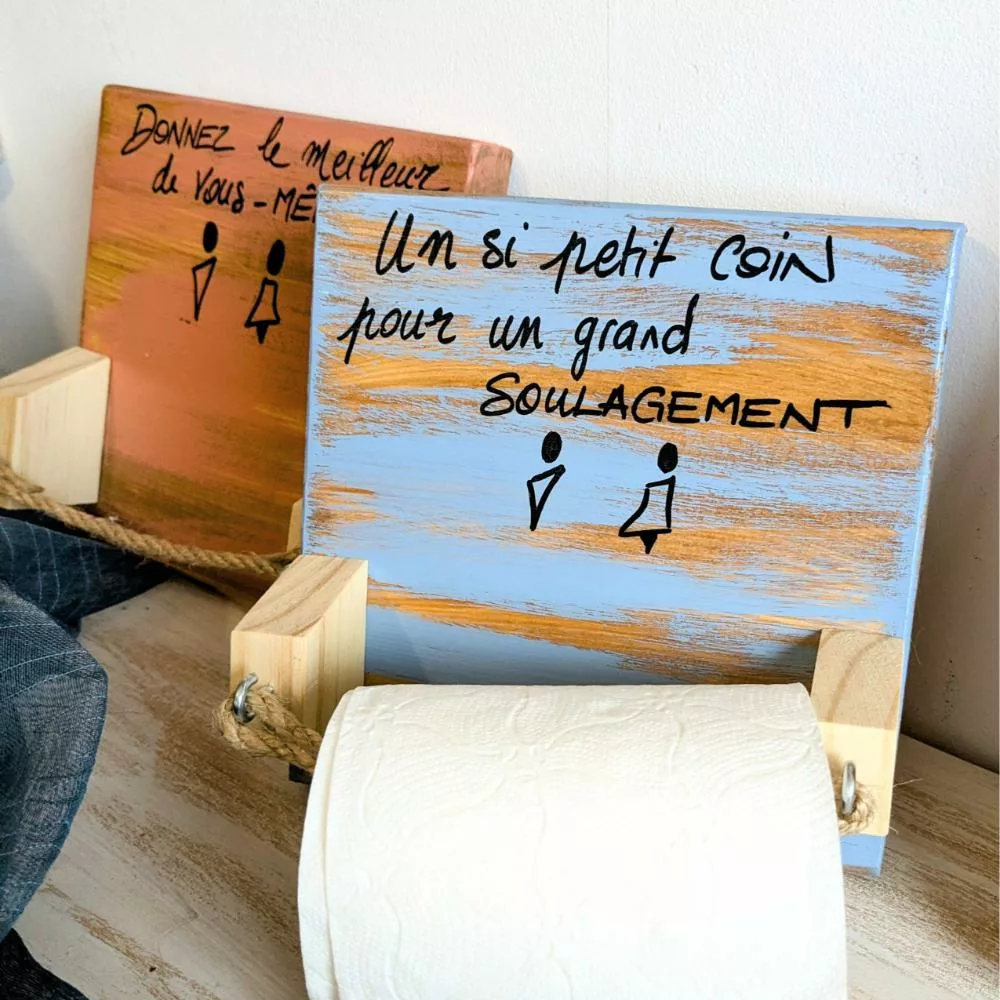 DONNEZ le meilleur
de vous-MÊ
Un si petit COIN
pour un grand
SOULAGEMENT